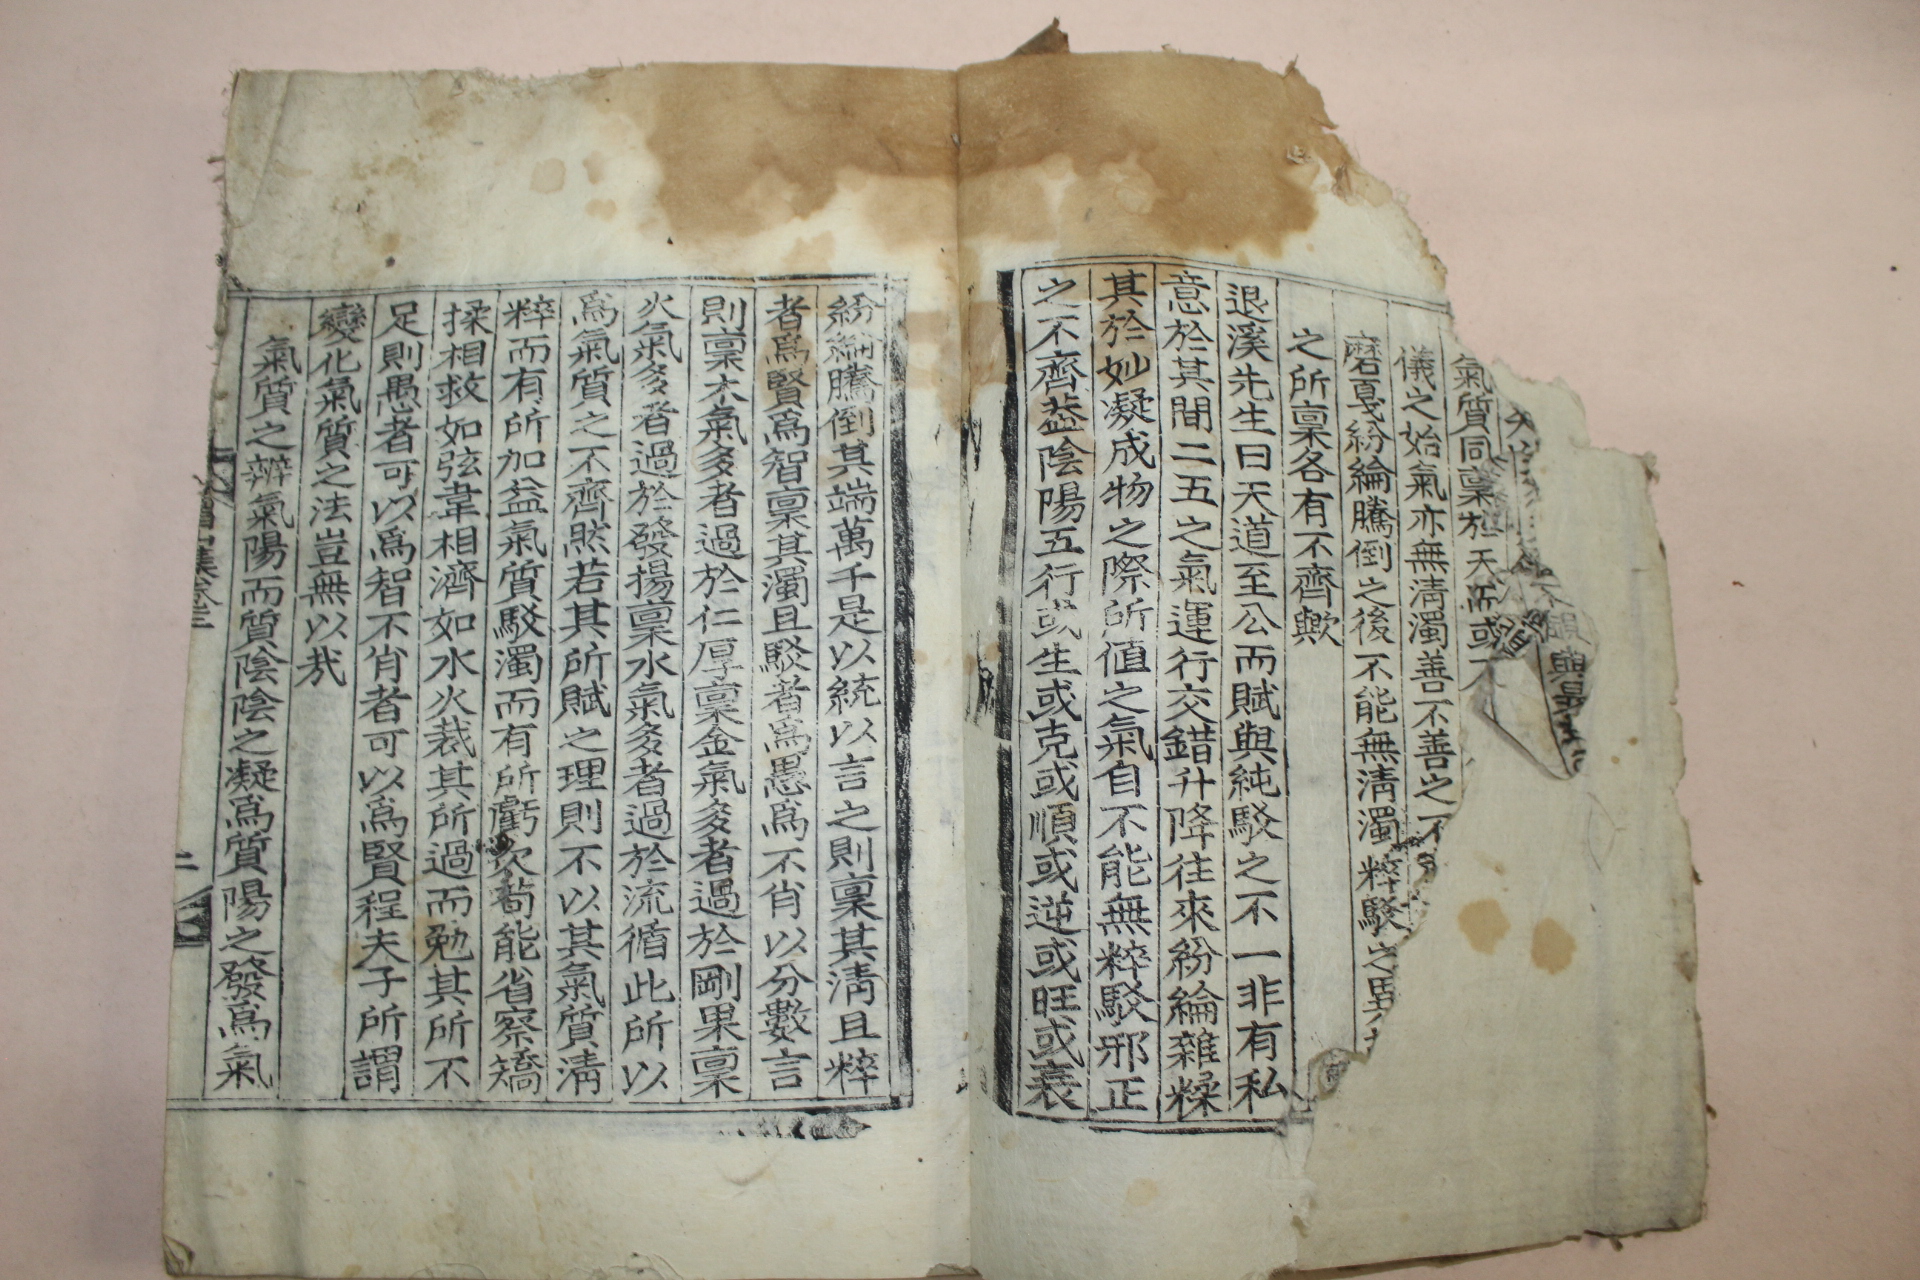 氣質同稟於天而或
儀之始氣亦無淸濁善不善之不
磨戛紛綸騰倒之後不能無淸濁粹駁之異
之所稟各有不齊歟
退溪先生曰天道至公而賦與純駁之不一非有私
意於其間二五之氣運行交錯升降往來紛綸雜糅
其於妙凝成物之際所値之氣自不能無粹駁邪正
之不齊盖陰陽五行或生或克或順或逆或旺或衰
紛綸騰倒其端萬千是以統以言之則稟其淸且粹
者爲賢爲智稟其濁且駁者爲愚爲不肖以分數言
則稟木氣多者過於仁厚稟金氣多者過於剛果稟
火氣多者過於發揚稟水氣多者過於流循此所以
爲氣質之不齊然若其所賦之理則不以其氣質淸
粹而有所加益氣質駁濁而有所虧欠苟能省察矯
揉相救如弦韋相濟如水火裁其所過而勉其所不
足則愚者可以爲智不肖者可以爲賢程夫子所謂
變化氣質之法豈無以哉
氣質之辨氣陽而質陰陰之凝爲質陽之發爲氣
集卷三
二